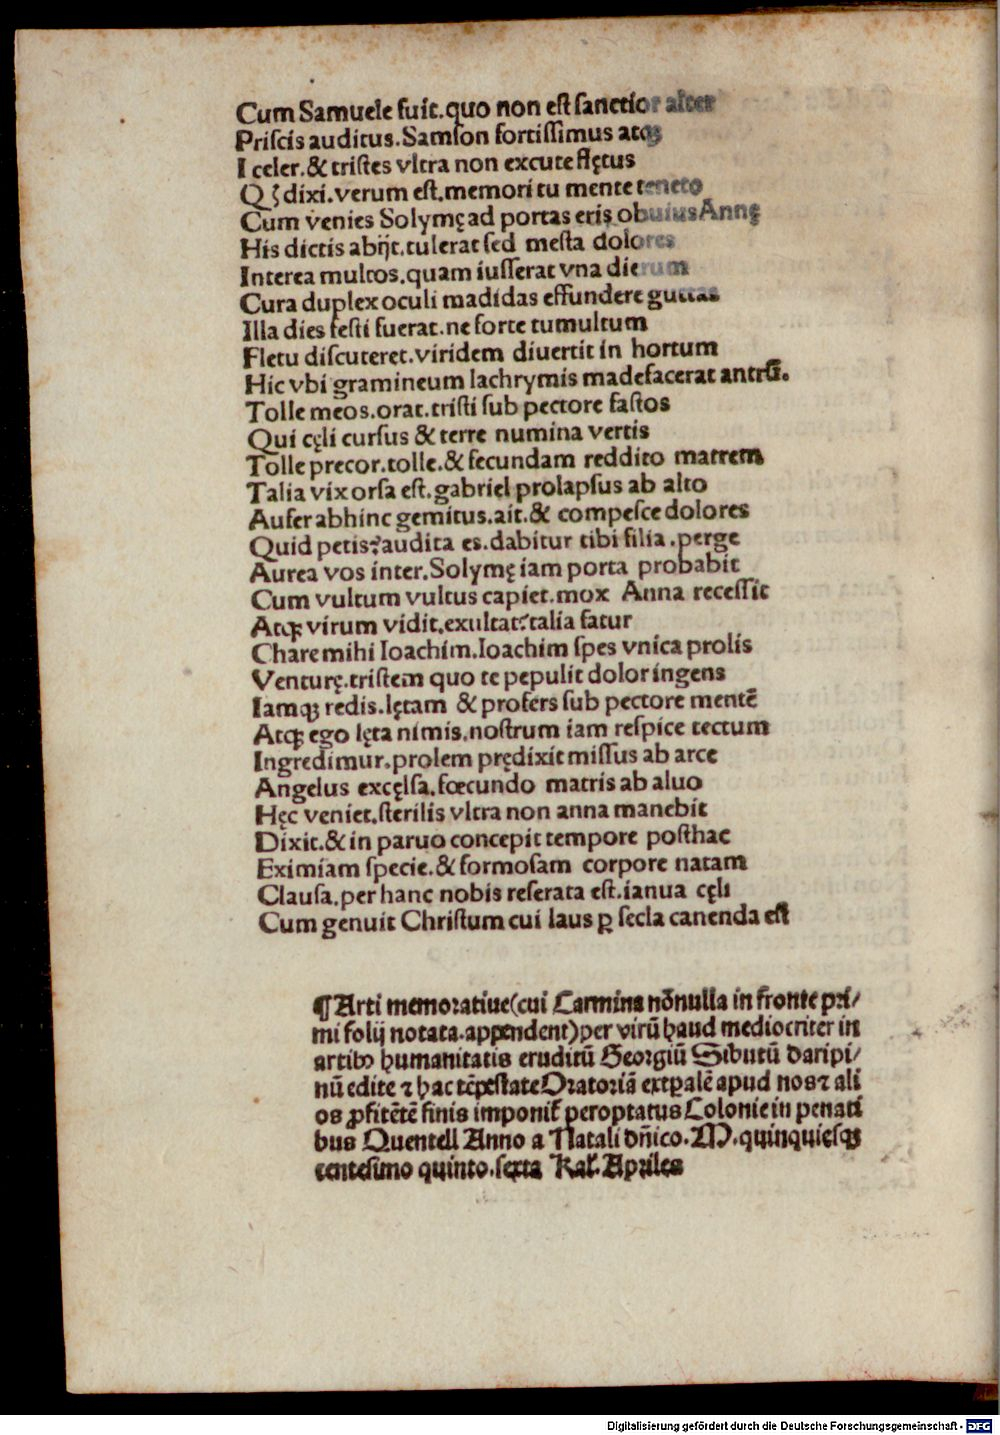 Cum Samuele fuit.quo non est sanctior alter
Priscis auditus.Samson fortissimus atqꝫ
I celer.& tristes vltra non excute flętus
Qꝫ dixi.verum est.memori tu mente teneto
Cum venies Solymę ad portas eris obuius Annę
His dictis abijt.tulerat sed mesta dolores
Interea multos.quam iusserat vna dierum
Cura duplex oculi madidas effundere guttas
Illa dies festi fuerat.ne forte tumultum
Fletu discuteret.viridem diuertit in hortum
Hic vbi gramineum lachrymis madefacerat antrū.
Tolle meos.orat.tristi sub pectore fastos
Qui cęli cursus & terre numina vertis
Tolle precor.tolle.& fecundam reddito matrem
Talia vix orsa est.gabriel prolapsus ab alto
Aufer abhinc gemitus.ait.& compesce dolores
Quid petis?audita es.dabitur tibi filia.perge
Aurea vos inter.Solymę iam porta probabit
Cum vultum vultus capiet.mox Anna recessit
Atqꝫ virum vidit.exultat?talia fatur
Chare mihi Ioachim.Ioachim spes vnica prolis
Venturę.tristem quo te pepulit dolor ingens
Iamqꝫ redis.lętam & profers sub pectore mentē
Atqꝫ ego lęta nimis.nostrum iam respice tectum
Ingredimur.prolem prędixit missus ab arce
Angelus excęlsa.fœcundo matris ab aluo
Hęc veniet.sterilis vltra non anna manebit
Dixit.& in paruo concepit tempore posthac
Eximiam specie.& formosam corpore natam
Clausa.per hanc nobis reserata est.ianua cęli
Cum genuit Christum cui laus ꝑ secla canenda est
¶ Arti memoratiue(cui Carmina nōnulla in fronte pri/
mi folij notata.appendent)per virū haud mediocriter in
artibꝰ humanitatis eruditū Georgiū Sibutū daripi/
nū edite ⁊ hac tēpestate Oratoriā extꝑalē apud nos ⁊ ali
os ꝓfitētē finis imponit̄ peroptatus Colonie in penati
bus Quentell Anno a Natali dñico.M.quinquiesqꝫ
centesimo quinto.sexta Kal̄.Apriles
Digitalisierung gefördert durch die Deutsche Forschungsgemeinschaft - DFG